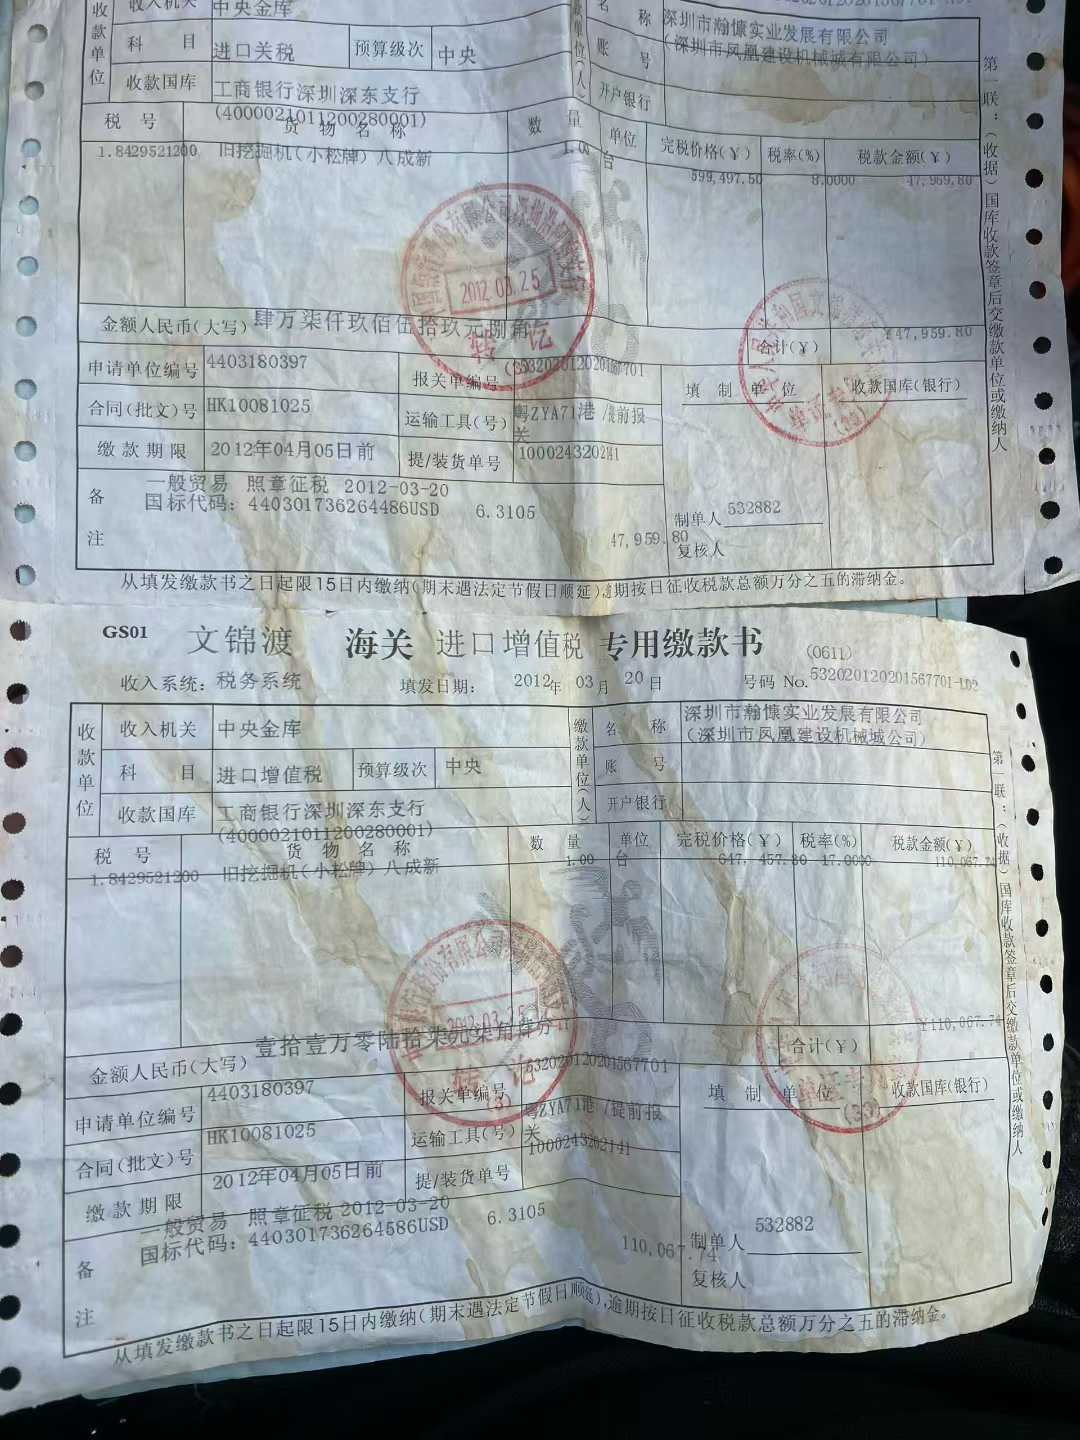 收入机关 中央金库
科 目 进口关税 预算级次 中央
收款国库 工商银行深圳深东支行
(4000021011200280001)
收款单位
名 称 深圳市瀚慷实业发展有限公司
(深圳市凤凰建设机械城有限公司)
账 号
开户银行
税 号 货 物 名 称 数 量 单位 完税价格(¥) 税率(%) 税款金额(¥)
1.8429521200 旧挖掘机(小松牌)八成新 1.00 台 599,497.50 8.0000 47,959.80
第一联:(收据)国库收款签章后交缴款单位或缴纳人
2012.03.25
转讫
金额人民币(大写) 肆万柒仟玖佰伍拾玖元捌角 合计(¥) ¥47,959.80
申请单位编号 4403180397 报关单编号 532020120201567701 填 制 单 位 收款国库(银行)
合同(批文)号 HK10081025 运输工具(号) 粤ZYA71港 /提前报关
缴 款 期 限 2012年04月05日前 提/装货单号 1000243202141
备注
一般贸易 照章征税 2012-03-20
国标代码: 440301736264486USD 6.3105
47,959.80
制单人 532882
复核人
从填发缴款书之日起限15日内缴纳(期末遇法定节假日顺延),逾期按日征收税款总额万分之五的滞纳金。
GS01 文锦渡 海关 进口增值税 专用缴款书 (0611)
收入系统: 税务系统 填发日期: 2012年 03月 20日 号码 No. 532020120201567701-L02
收款单位
收入机关 中央金库
科 目 进口增值税 预算级次 中央
收款国库 工商银行深圳深东支行
(4000021011200280001)
缴款单位(人)
名 称 深圳市瀚慷实业发展有限公司
(深圳市凤凰建设机械城公司)
账 号
开户银行
税 号 货 物 名 称 数 量 单位 完税价格(¥) 税率(%) 税款金额(¥)
1.8429521200 旧挖掘机(小松牌)八成新 1.00 台 647,457.30 17.0000 110,067.74
第一联:(收据)国库收款签章后交缴款单位或缴纳人
2012.03.25
转讫
(3)
金额人民币(大写) 壹拾壹万零陆拾柒元柒角肆分 合计(¥) ¥110,067.74
申请单位编号 4403180397 报关单编号 532020120201567701 填 制 单 位 收款国库(银行)
合同(批文)号 HK10081025 运输工具(号) 粤ZYA71港 /提前报关
缴 款 期 限 2012年04月05日前 提/装货单号 1000243202141
备注
一般贸易 照章征税 2012-03-20
国标代码: 440301736264586USD 6.3105
110,067.74
制单人 532882
复核人
从填发缴款书之日起限15日内缴纳(期末遇法定节假日顺延),逾期按日征收税款总额万分之五的滞纳金。